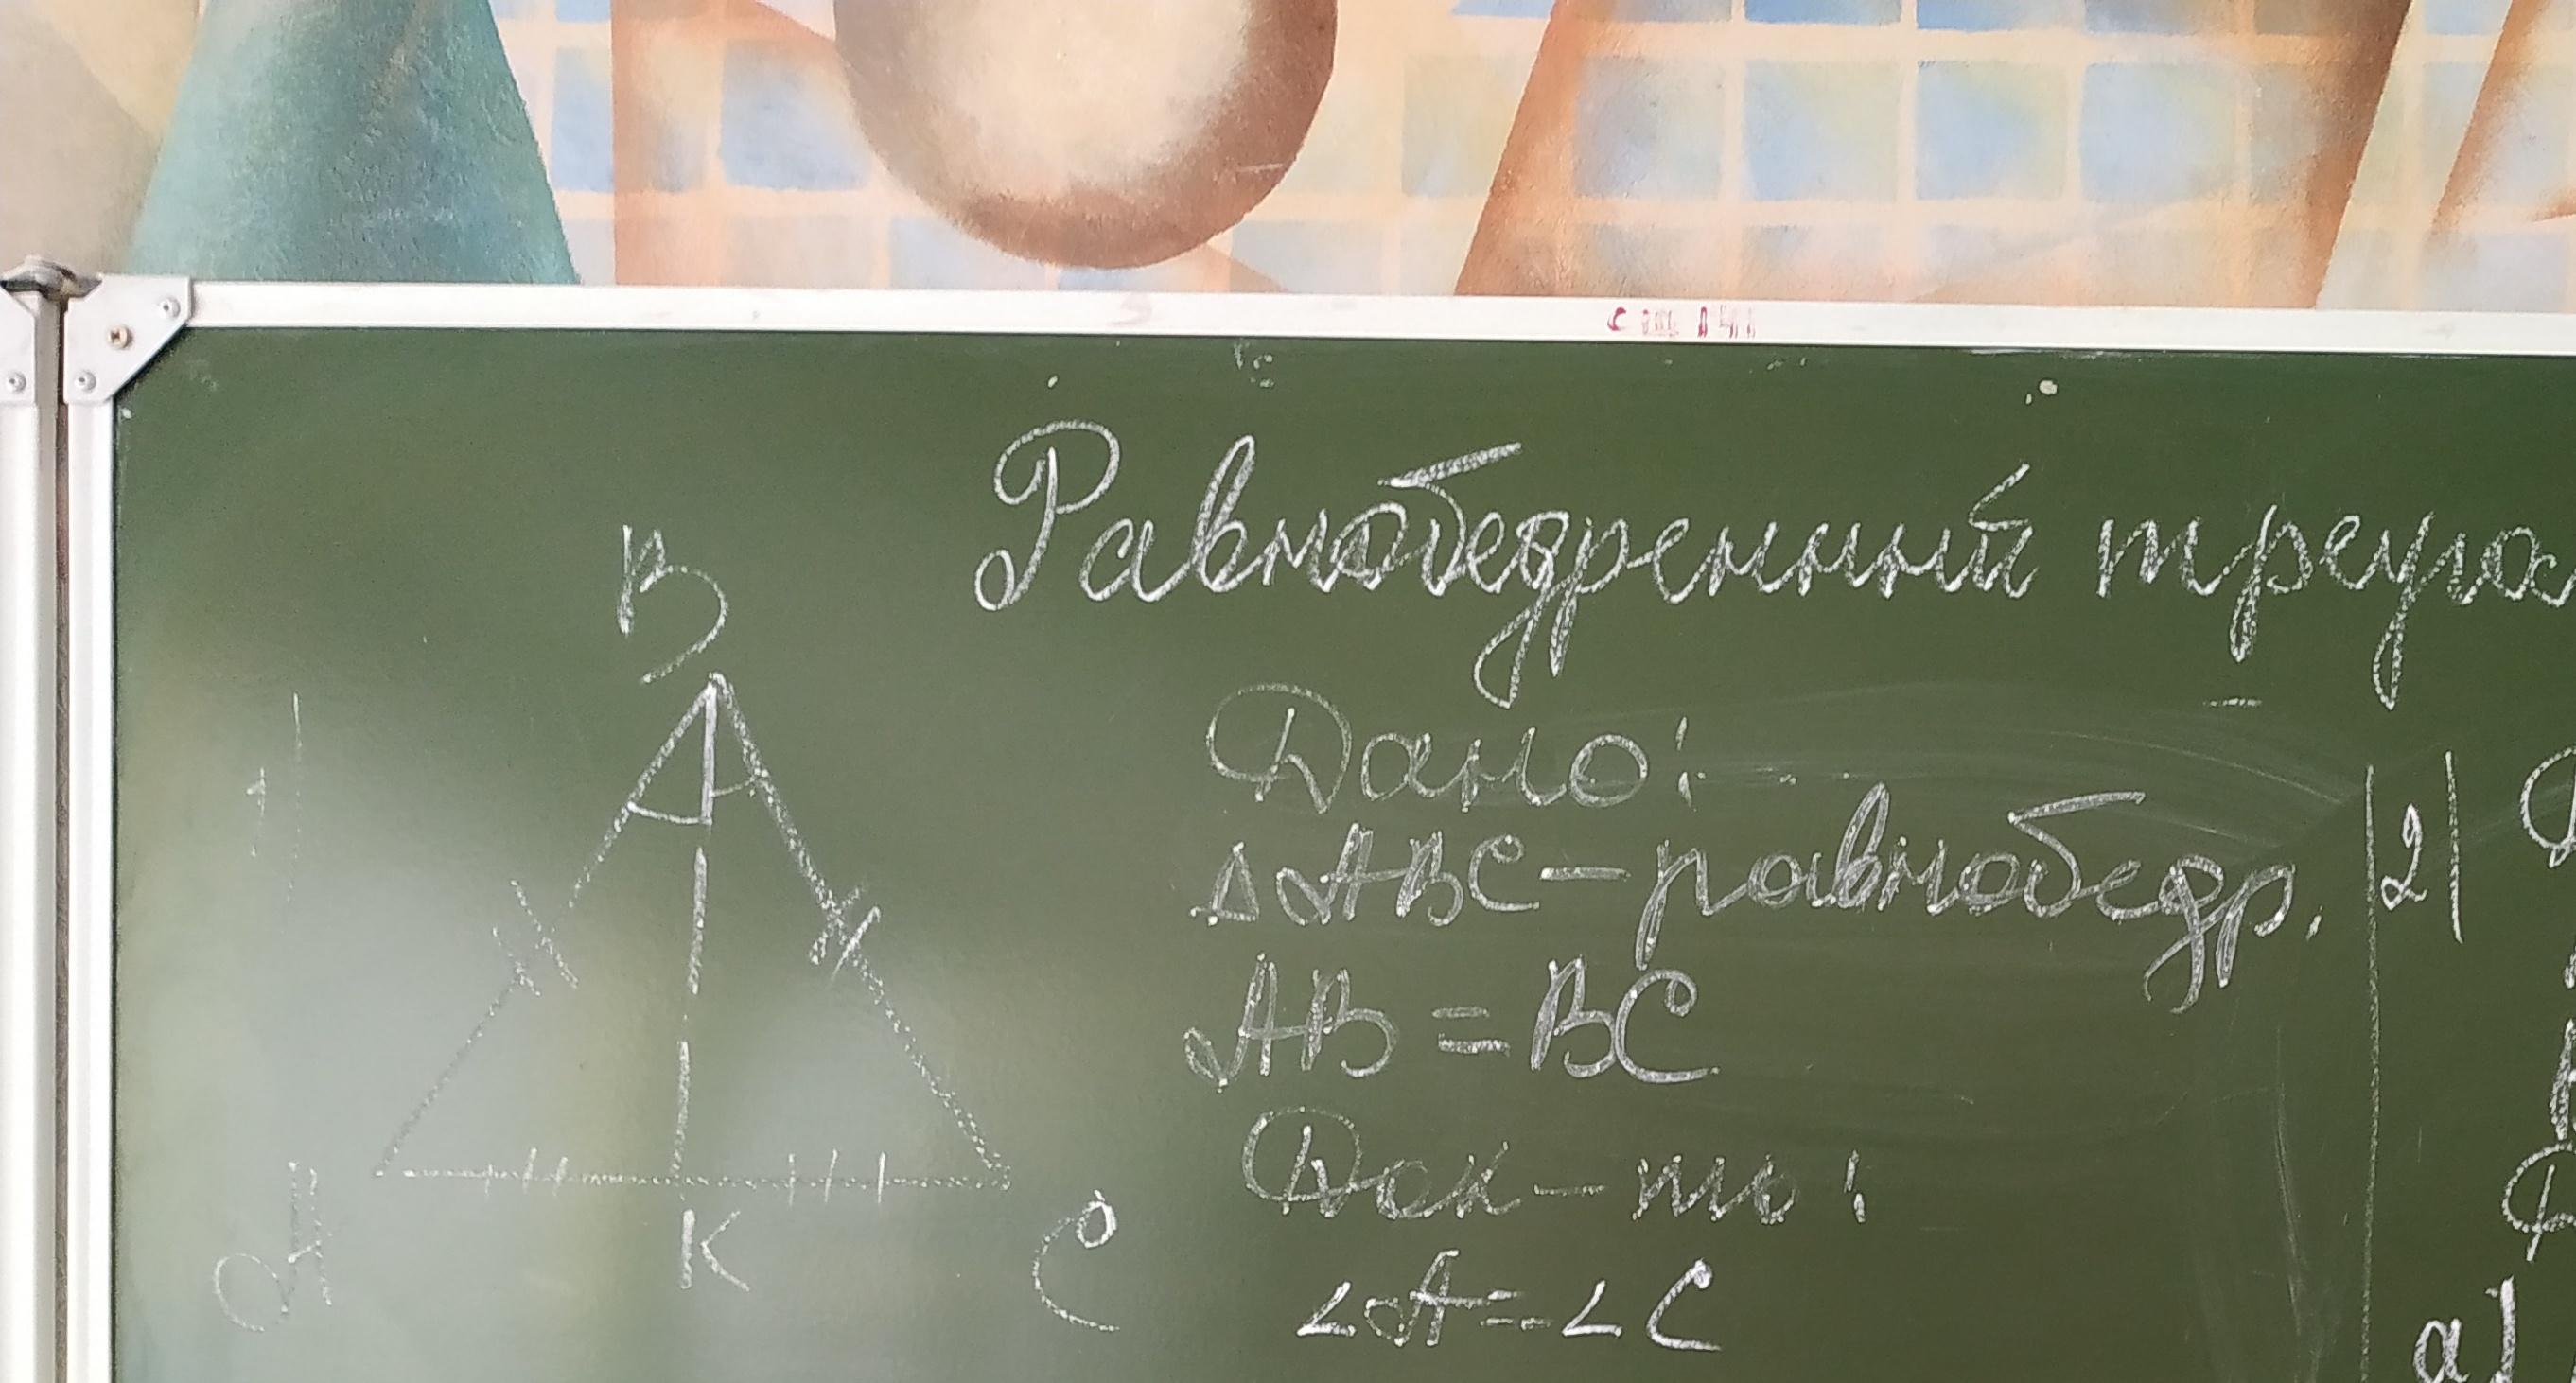 Равнобедренный треуго
1)
B
A
K
C
Дано:
△ABC – равнобедр.
AB = BC
Док-ть:
∠A = ∠C
2)
а)